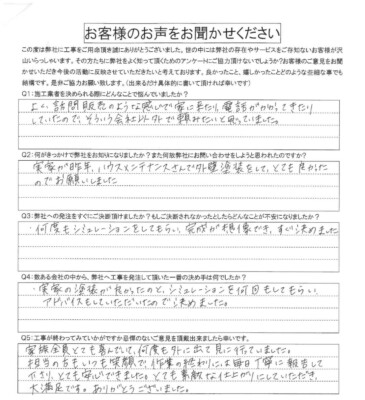 お客様のお声をお聞かせください
この度は弊社に工事をご用命頂き誠にありがとうございました。世の中には弊社の存在やサービスをご存知ないお客様が沢
山いらっしゃいます。その方たちに弊社をよく知って頂くためのアンケートにご協力頂けないでしょうか？お客様のご意見をお聞
かせいただき今後の活動に反映させていただきたいと考えております。良かったこと、嬉しかったことどのような些細な事でも
結構です。是非ご協力お願い致します。（出来るだけ具体的に書いて頂ければ幸いです）
Q1:施工業者を決められる際にどんなことで悩んでいましたか？
よく、訪問販売のような感じで家に来たり、電話がかかってきたり
していたので、そういう会社以外で頼みたいと思っていました。
Q2:何がきっかけで弊社をお知りになりましたか？また何故弊社にお問い合わせをしようと思われたのですか？
実家が昨年、ハウスメンテナンスさんで外壁塗装をして、とても良かった
のでお願いしました
Q3:弊社への発注をすぐにご決断頂けましたか？もしご決断されなかったとしたらどんなことが不安になりましたか？
・何度もシミュレーションをしてもらい、完成が想像でき、すぐ決めました
Q4:数ある会社の中から、弊社へ工事を発注して頂いた一番の決め手は何でしたか？
・実家の塗装が良かったのと、シミュレーションを何回もしてもらい、
アドバイスもしていただいたので決めました。
Q5:工事が終わってみていかがですか忌憚のないご意見を頂戴出来ましたら幸いです。
家族全員とても喜んでいて、何度も外に出て見に行っていました。
担当の方もいつも笑顔で、作業の終わりには毎日丁寧に報告して
下さり、とても安心できました。とても素敵な仕上がりにしていただき、
大満足です。ありがとうございました。